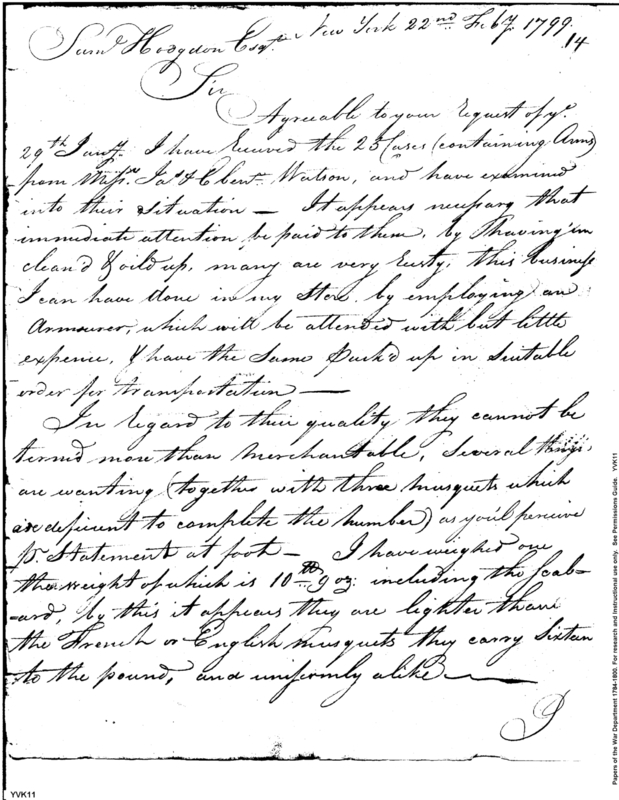 New York 22nd Feby. 1799.
14
Saml. Hodgdon Esqr.
Sir
Agreeable to your request of ye.
29th Jany. I have received the 25 Cases (containing Arms)
from Messrs. Jas. & Ebenr. Watson, and have examined
into their Situation — It appears necessary that
immediate attention be paid to them, by having 'em
clean'd & oild up, many are very rusty, this business
I can have done in my Store by employing an
Armourer, which will be attended with but little
expence, & have the Same pack'd up in Suitable
order for transportation —
In regard to their quality they cannot be
termed more than Merchantable, Several things
are wanting (together with three musquets which
are deficient to complete the number) as you'l perceive
pr. Statement at foot — I have weighed one
the weight of which is 10 lb 9 oz: including the Scab=
=ard, by this it appears they are lighter than
the French or English musquets they carry Sixteen
to the pound, and uniformly alike —
Papers of the War Department 1784-1800. For research and instructional use only. See Permissions Guide. YVK11
YVK11